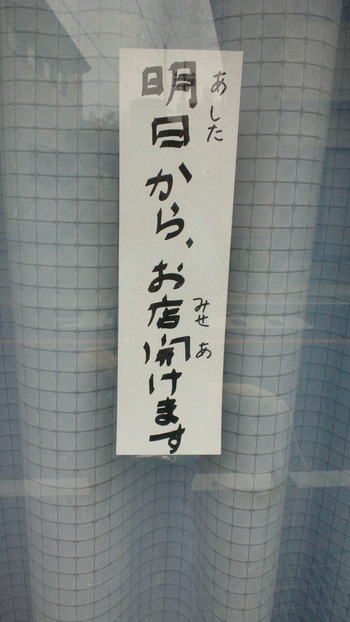 明日から、お店開けます
あした
みせ あ